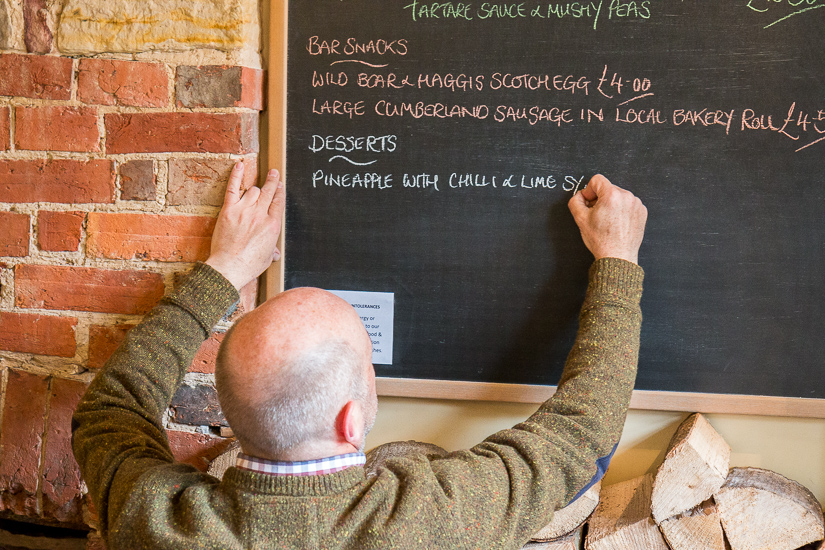 TARTARE SAUCE & MUSHY PEAS
BAR SNACKS
WILD BOAR & HAGGIS SCOTCH EGG £4.00
LARGE CUMBERLAND SAUSAGE IN LOCAL BAKERY ROLL £4.5
DESSERTS
PINEAPPLE WITH CHILLI & LIME SY
INTOLERANCES
ergy or
to our
ood &